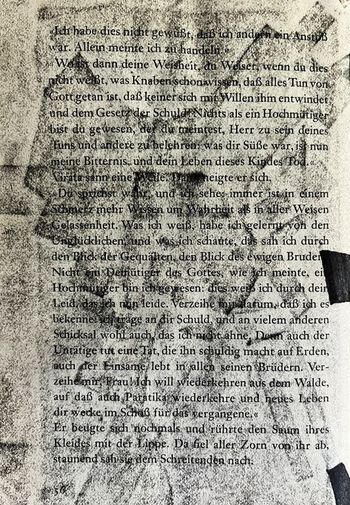 »Ich habe dies nicht gewußt, daß ich andern ein Anstoß
war. Allein meinte ich zu handeln.«
»Wo ist dann deine Weisheit, du Weiser, wenn du dies
nicht weißt, was Knaben schon wissen, daß alles Tun von
Gott getan ist, daß keiner sich mit Willen ihm entwindet
und dem Gesetz der Schuld. Nichts als ein Hochmütiger
bist du gewesen, der du meintest, Herr zu sein deines
Tuns und andere zu belehren: was dir Süße war, ist nun
meine Bitternis, und dein Leben dieses Kindes Tod.«
Virata sann eine Weile. Dann neigte er sich.
»Du sprichst wahr, und ich sehe: immer ist in einem
Schmerz mehr Wissen um Wahrheit als in aller Weisen
Gelassenheit. Was ich weiß, habe ich gelernt von den
Unglücklichen, und was ich schaute, das sah ich durch
den Blick der Gequälten, den Blick des ewigen Bruders.
Nicht ein Demütiger des Gottes, wie ich meinte, ein
Hochmütiger bin ich gewesen: dies weiß ich durch dein
Leid, das ich nun leide. Verzeihe mir darum, daß ich es
bekenne: ich trage an dir Schuld, und an vielem anderen
Schicksal wohl auch, das ich nicht ahne. Denn auch der
Untätige tut eine Tat, die ihn schuldig macht auf Erden,
auch der Einsame lebt in allen seinen Brüdern. Ver-
zeihe mir, Frau! Ich will wiederkehren aus dem Walde,
auf daß auch Paratika wiederkehre und neues Leben
dir wecke im Schoß für das vergangene.«
Er beugte sich nochmals und rührte den Saum ihres
Kleides mit der Lippe. Da fiel aller Zorn von ihr ab,
staunend sah sie dem Schreitenden nach.